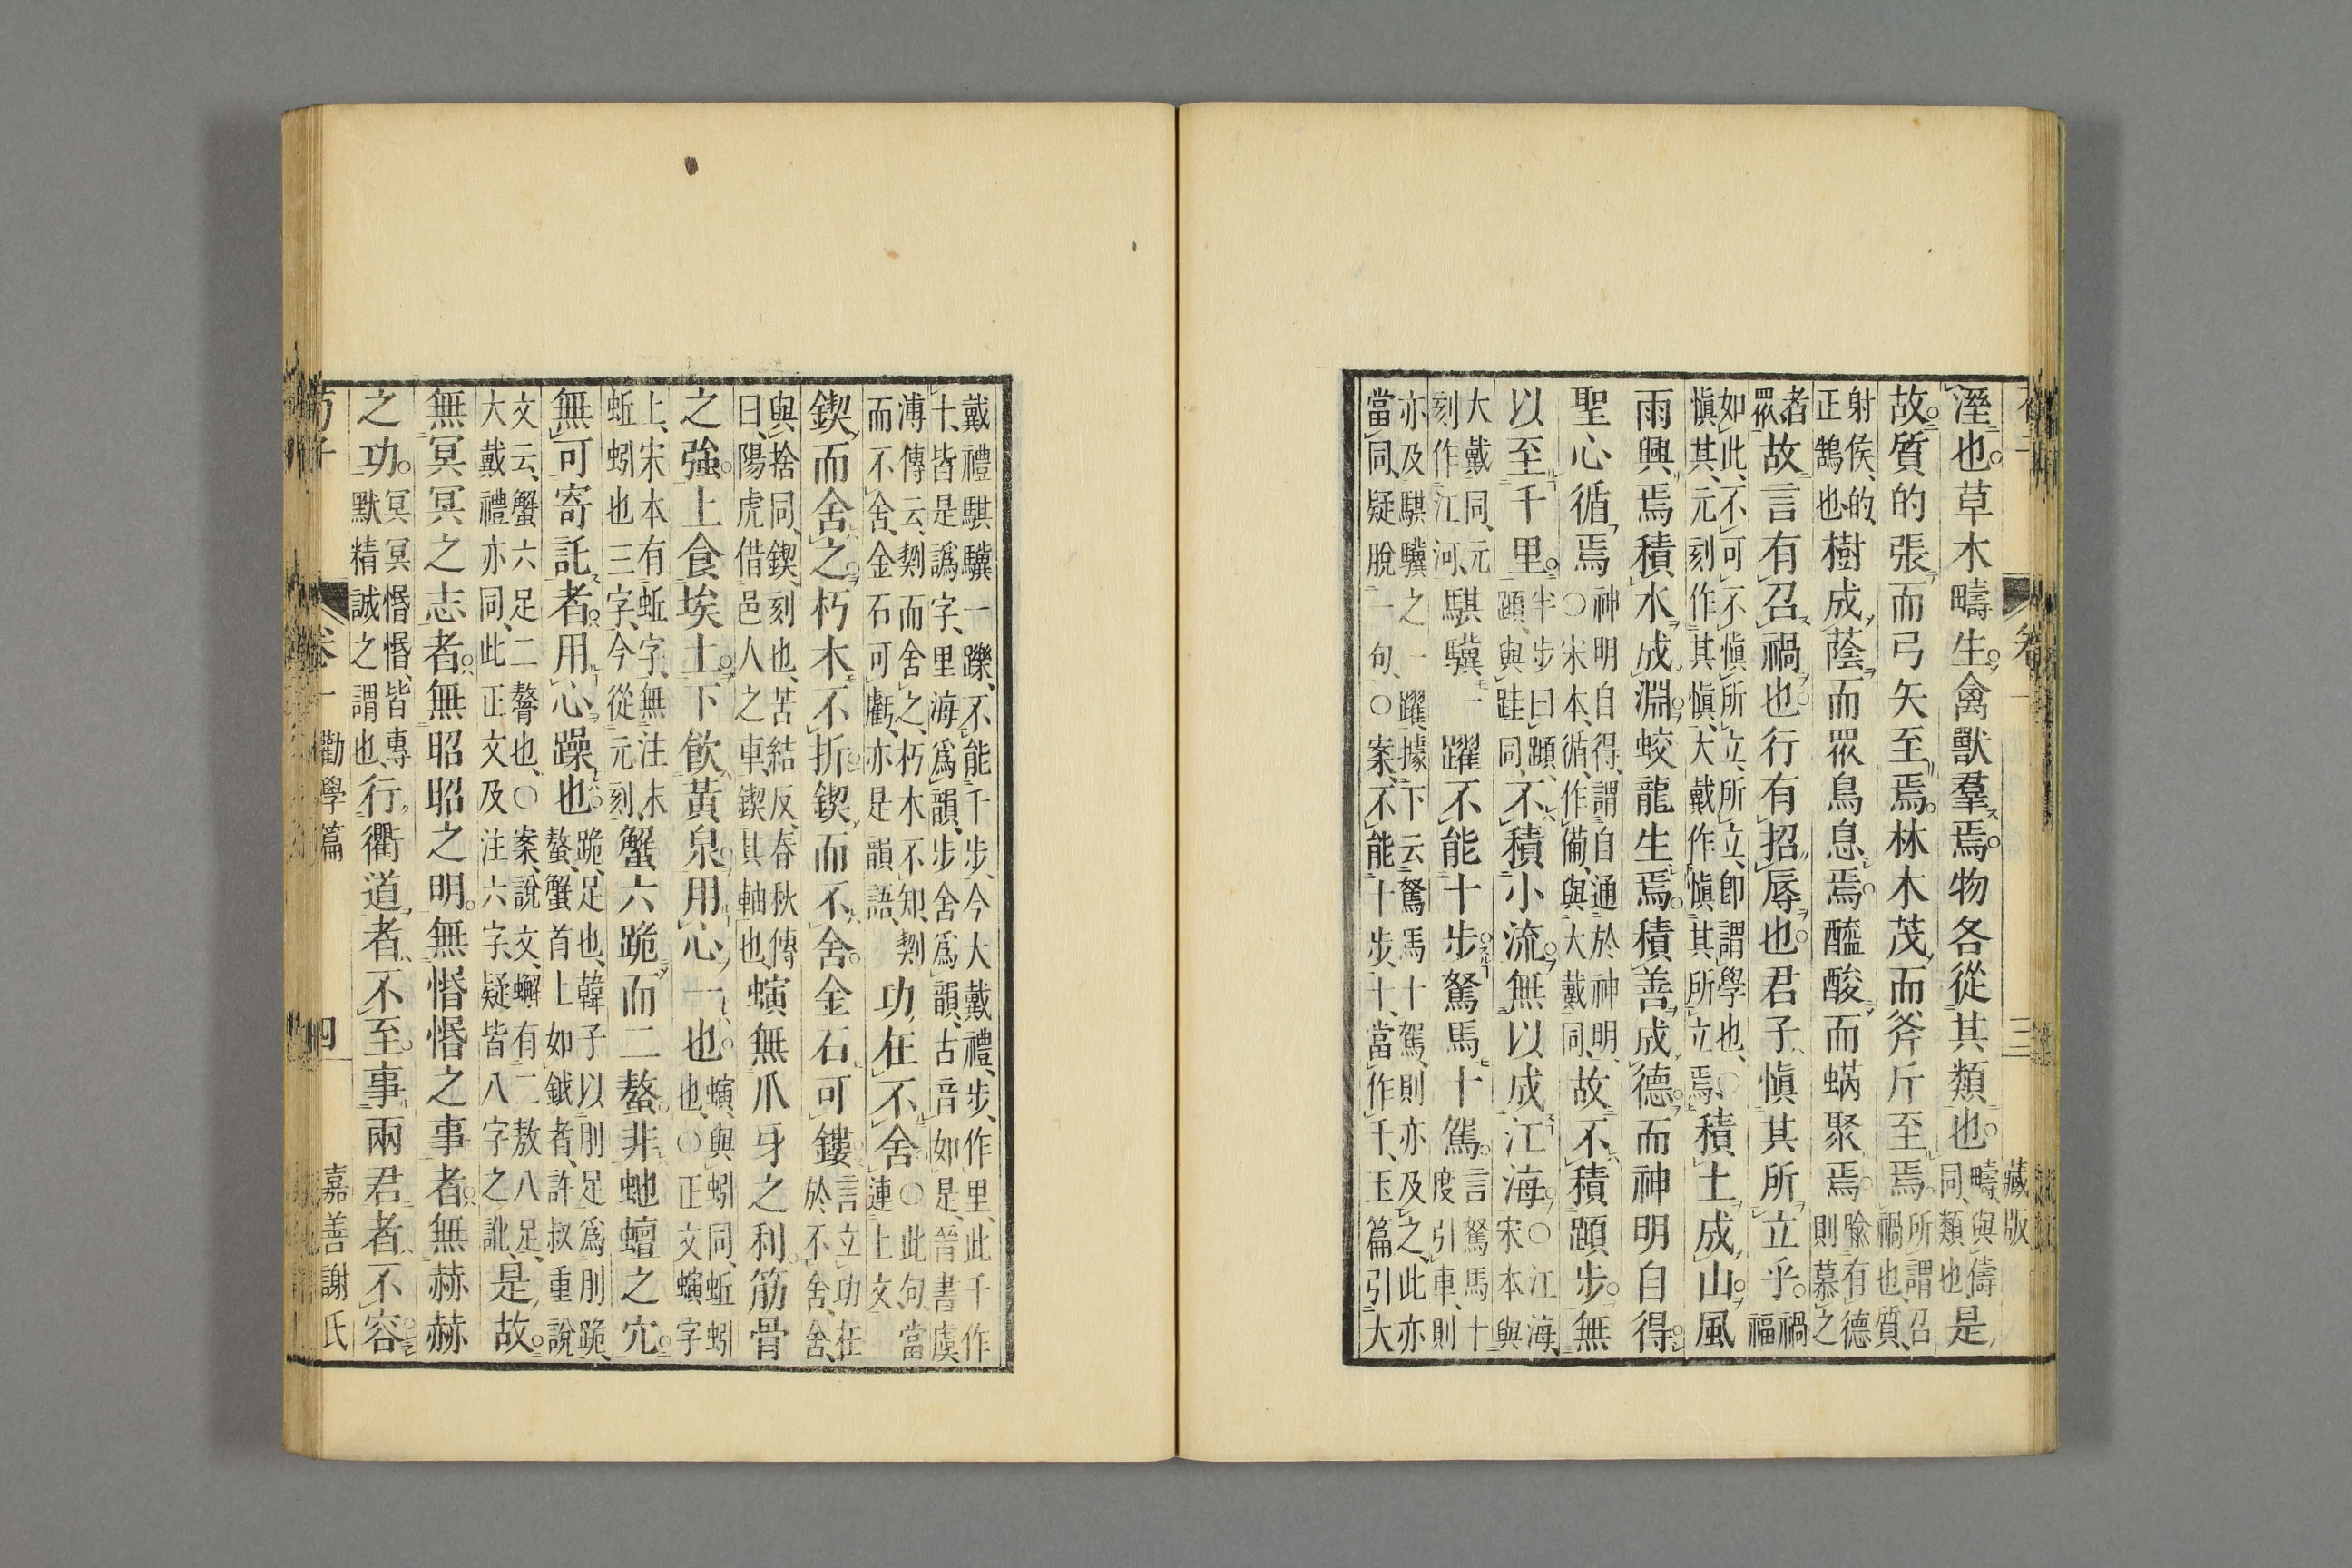 卷一 三 藏版
溼也。草木疇生。禽獸羣焉。物各從其類也。疇、與儔同、類也、是
故。質的張而弓矢至焉。林木茂而斧斤至焉。所謂召禍也、質、
射侯、的、正鵠也、樹成蔭而眾鳥息焉。醯酸而蜹聚焉。喩有德則慕之
者眾故言有召禍也。行有招辱也。君子愼其所立乎。禍福
如此、不可不愼所立、所立、卽謂學也、○愼其、元刻作其愼、大戴作愼其所立焉、積土成山。風
雨興焉。積水成淵。蛟龍生焉。積善成德。而神明自得。
聖心循焉神明自得、謂自通於神明、○宋本、循、作備、與大戴同、故不積蹞步。無
以至千里。半步曰蹞、蹞、與跬同、不積小流。無以成江海。○江海、宋本與
大戴同、元刻作江河、騏驥一躍。不能十步。駑馬十駕。言駑馬十度引車、則
亦及騏驥之一躍、據下云駑馬十駕、則亦及之、此亦當同、疑脫一句、○案、不能十步、十、當作千、玉篇引大
戴禮騏驥一躒、不能千步、今大戴禮、步、作里、此千作十、皆是譌字、里海爲韻、步舍爲韻、古音如是、晉書虞
溥傳云、剟而舍之、朽木不知、剟而不舍、金石可虧、亦是韻語、功在不舍。○此句、當連上文、
鍥而舍之。朽木不折。鍥而不舍。金石可鏤。言立功在於不舍、舍、
與捨同、鍥、刻也、苦結反、春秋傳曰、陽虎借邑人之車、鍥其軸也、螾無爪牙之利。筋骨
之強。上食埃土。下飮黃泉。用心一也。螾、與蚓同、蚯蚓也、○正文螾字
上、宋本有蚯字、無注末蚯蚓也三字、今從元刻、蟹六跪而二螯。非虵蟺之穴。
無可寄託者。用心躁也。跪、足也、韓子以刖足爲刖跪、螯、蟹首上如鉞者、許叔重說
文云、蟹六足二螯也、○案、說文、蠏有二敖八足、大戴禮亦同、此正文及注六字、疑皆八字之訛、是故。
無冥冥之志者。無昭昭之明。無惛惛之事者。無赫赫
之功。冥冥惛惛、皆專默精誠之謂也、行衢道者。不至。事兩君者。不容
荀子 卷一 勸學篇 四 嘉善謝氏